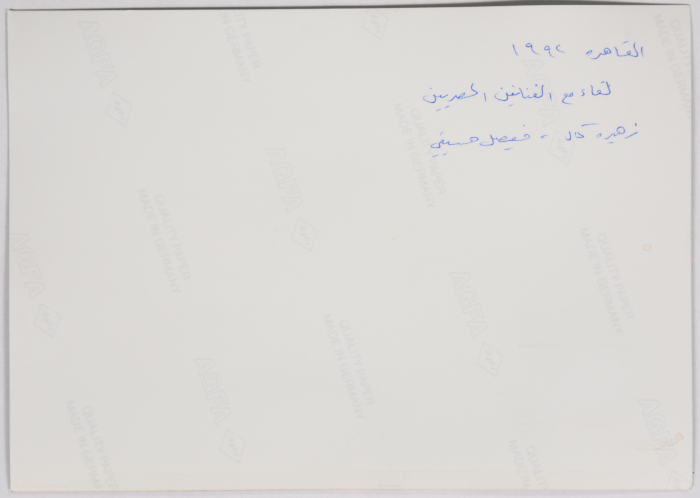 القاهره ١٩٩٢
لقاء مع الفنانين المصريين
زهيره كمال - فيصل حسيني
AGFA
QUALITY PAPER
MADE IN GERMANY